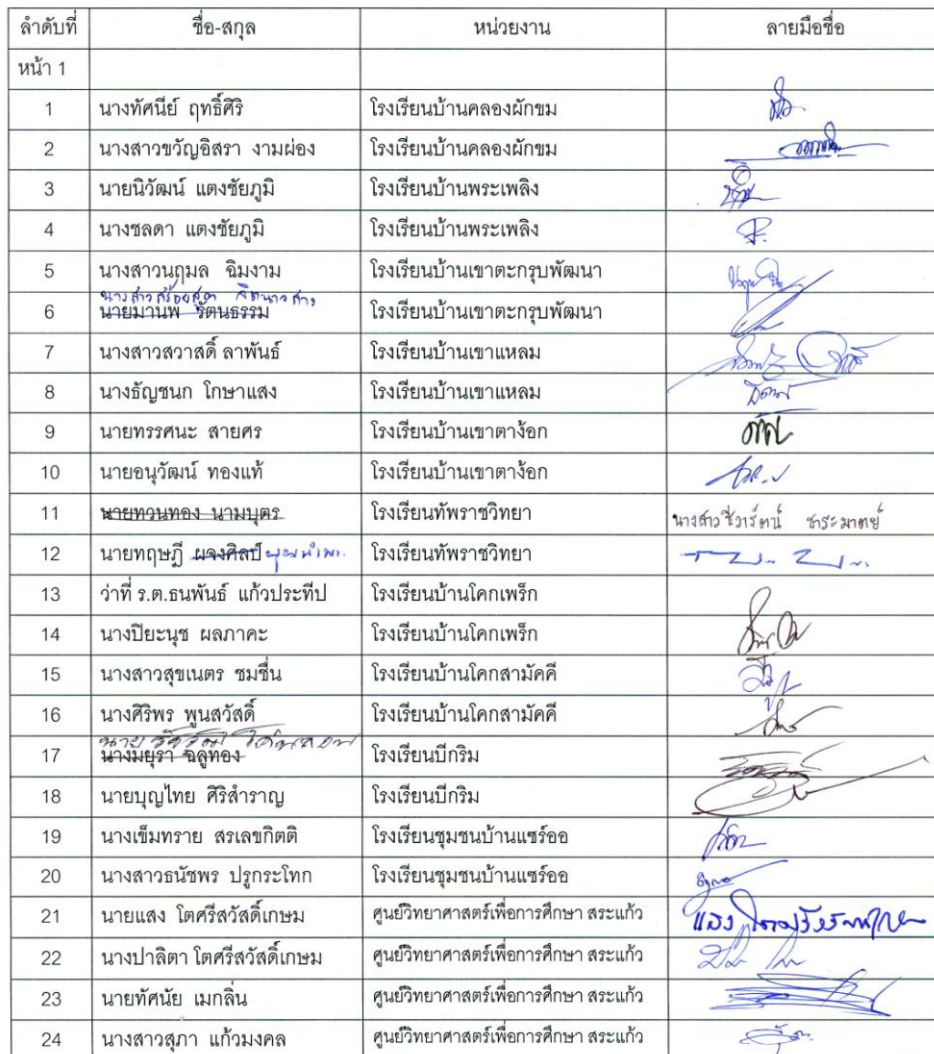 ลำดับที่ ชื่อ-สกุล หน่วยงาน ลายมือชื่อ
หน้า 1
1 นางทัศนีย์ ฤทธิ์ศิริ โรงเรียนบ้านคลองผักขม
2 นางสาวขวัญอิสรา งามผ่อง โรงเรียนบ้านคลองผักขม
3 นายนิวัฒน์ แตงชัยภูมิ โรงเรียนบ้านพระเพลิง
4 นางชลดา แตงชัยภูมิ โรงเรียนบ้านพระเพลิง
5 นางสาวนฤมล ฉิมงาม โรงเรียนบ้านเขาตะกรุบพัฒนา
นางสาว
6 นายมานพ รัตนธรรม โรงเรียนบ้านเขาตะกรุบพัฒนา
7 นางสาวสวาสดิ์ ลาพันธ์ โรงเรียนบ้านเขาแหลม
8 นางธัญชนก โกษาแสง โรงเรียนบ้านเขาแหลม
9 นายทรรศนะ สายศร โรงเรียนบ้านเขาตาง้อก
10 นายอนุวัฒน์ ทองแท้ โรงเรียนบ้านเขาตาง้อก
11 นายทวนทอง นามบุตร โรงเรียนทัพราชวิทยา นางสาว ชีวารัตน์ ชาระมาตย์
12 นายทฤษฎี ผจงศิลป์ โรงเรียนทัพราชวิทยา
13 ว่าที่ ร.ต.ธนพันธ์ แก้วประทีป โรงเรียนบ้านโคกเพร็ก
14 นางปิยะนุช ผลภาคะ โรงเรียนบ้านโคกเพร็ก
15 นางสาวสุขเนตร ชมชื่น โรงเรียนบ้านโคกสามัคคี
16 นางศิริพร พูนสวัสดิ์ โรงเรียนบ้านโคกสามัคคี
นาย
17 นางมยุรา ฉลูทอง โรงเรียนบีกริม
18 นายบุญไทย ศิริสำราญ โรงเรียนบีกริม
19 นางเข็มทราย สรเลขกิตติ โรงเรียนชุมชนบ้านแซร์ออ
20 นางสาวธนัชพร ปรูกระโทก โรงเรียนชุมชนบ้านแซร์ออ
21 นายแสง โตศรีสวัสดิ์เกษม ศูนย์วิทยาศาสตร์เพื่อการศึกษา สระแก้ว แสง โตศรีสวัสดิ์เกษม
22 นางปาลิตา โตศรีสวัสดิ์เกษม ศูนย์วิทยาศาสตร์เพื่อการศึกษา สระแก้ว
23 นายทัศนัย เมกลิ่น ศูนย์วิทยาศาสตร์เพื่อการศึกษา สระแก้ว
24 นางสาวสุภา แก้วมงคล ศูนย์วิทยาศาสตร์เพื่อการศึกษา สระแก้ว